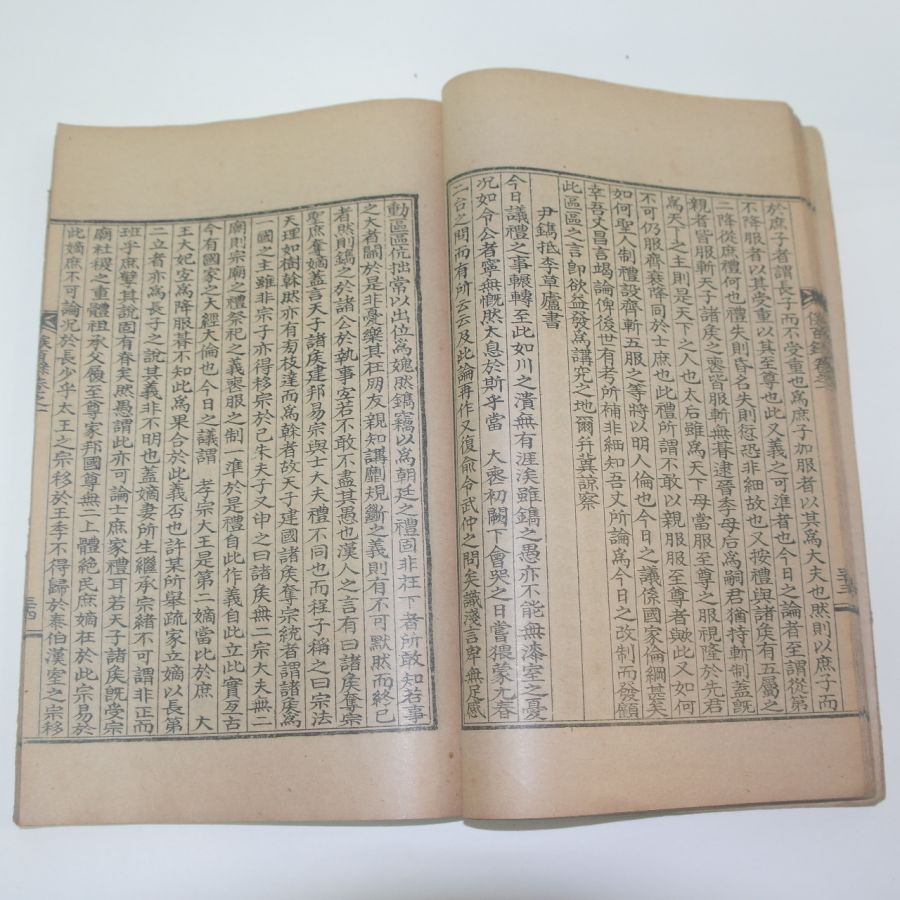 於庶子者謂長子而不受重也爲庶子加服者以其爲大夫也然則以庶子而
不降服者以其受重以其至尊也此又義之可準者也今日之論者至謂從第
二降從庶禮何也禮失則昏名失則愆恐非細故也又按禮與諸矦有五屬之
親者皆服斬天子諸矦之喪皆服斬無朞逮晉李母后爲嗣君猶持斬制蓋旣
爲天下之主則是天下之人也太后雖爲天下母當服至尊之服視隆於先君
不可仍服齊衰降同於士庶也此禮所謂不敢以親服服至尊者歟此又如何
如何聖人制禮設齊斬五服之等將以明人倫也今日之議係國家倫綱甚矣
幸吾丈昌言竭論俾後世有考所補非細知吾丈所論爲今日之改制而發顧
此區區之言卽欲益發爲講究之地爾幷冀諒察
尹鑴抵李草廬書
今日議禮之事輾轉至此如川之潰無有涯涘雖鑴之愚亦不能無漆室之憂
况如令公者寧無慨然太息於斯乎當 大喪初闕下會哭之日嘗猥蒙尤春
二台之問而有所云云及此論再作又復兪令武仲之問矣識淺言卑無足感
動區區伉拙常以出位爲媿然鑴竊以爲朝廷之禮固非在下者所敢知若事
之大者關於是非憂樂其在朋友親知講劘規斷之義則有不可默然而終已
者然則鑴之於諸公於執事客若不敢不盡其愚也漢人之言有曰諸矦奪宗
聖庶奪嫡蓋言天子諸矦建邦易宗與士大夫禮不同也而程子稱之曰宗法
天理如樹幹然亦有旁枝達而爲幹者故天子建國諸矦奪宗統者謂諸矦爲
一國之主雖非宗子亦得移宗於己朱夫子又申之曰諸矦無二宗大夫無二
廟則宗廟之禮祭祀之義喪服之制一準於是禮自此作義自此立此實亙古
今有國家之大經大倫也今日之議謂 孝宗大王是第二嫡當比於庶 大
王大妃宜爲降服朞不知此爲果合於此義否也許某所舉疏家立嫡以長第
二立者亦爲長子之說其義非不明也蓋嫡妻所生繼承宗緒不可謂非正而
班乎庶孼其說固有眷矣然愚謂此亦可論士庶家禮耳若天子諸矦旣受宗
廟社稷之重體祖承父履至尊家邦國尊無二上體絶民庶嫡在於此宗易於
此嫡庶不可論况於長少乎太王之宗移於王季不得歸於泰伯漢室之宗移